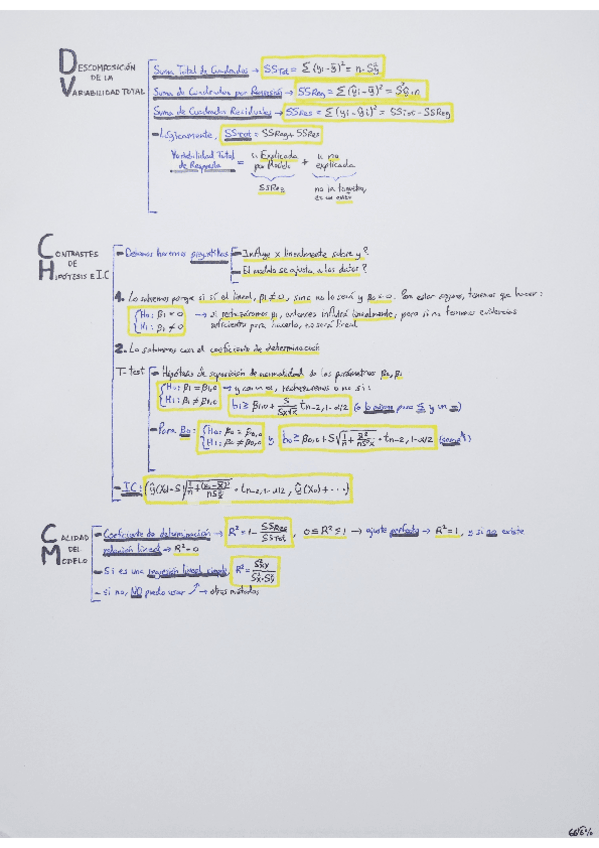 DESCOMPOSICIÓN DE LA VARIABILIDAD TOTAL
Suma Total de Cuadrados → SSTot = Σ(yi - ȳ)² = n · S²y
Suma de Cuadrados por Regresión → SSReg = Σ(ŷi - ȳ)² = S²ŷ · n
Suma de Cuadrados Residuales → SSRes = Σ(yi - ŷi)² = SSTot - SSReg
- Lógicamente, SSTot = SSReg + SSRes
Variabilidad Total de Respuesta = Explicada por Modelo + no explicada
SSReg
es un error
CONTRASTES DE HIPÓTESIS E I.C
- Debemos hacernos preguntitas
- Influye x linealmente sobre y?
- El modelo se ajusta a los datos?
1. Lo sabemos porque si sí es lineal, β1 ≠ 0, sino no lo será y β1 = 0. Para estar seguros, tenemos que hacer:
H0: β1 = 0
H1: β1 ≠ 0
→ si rechazáramos, entonces influirá linealmente, pero si no tenemos evidencias
suficientes para hacerlo, no será lineal
2. Lo sabemos con el coeficiente de determinación
T-test
- Hipótesis de suposición de normalidad de los parámetros β0, β1
H0: β1 = β1,0
H1: β1 ≠ β1,0
→ y con un α, rechazaremos o no si:
b1 ≥ β1,0 + S/(Sx√n) · tn-2, 1-α/2
- Para β0:
H0: β0 = β0,0
H1: β0 ≠ β0,0
y b0 ≥ β0,0 + S√(1/n + x̄²/(nS²x)) · tn-2, 1-α/2
- IC:
CALIDAD DEL MODELO
- Coeficiente de determinación → R² = 1 - SSRes/SSTot, 0 ≤ R² ≤ 1 → ajuste perfecto → R² = 1, y si no existe
relación lineal → R² = 0
- Si es una regresión lineal simple, R² = S²xy/(S²x · S²y)
- si no, NO puedo usar ↗ → otros métodos